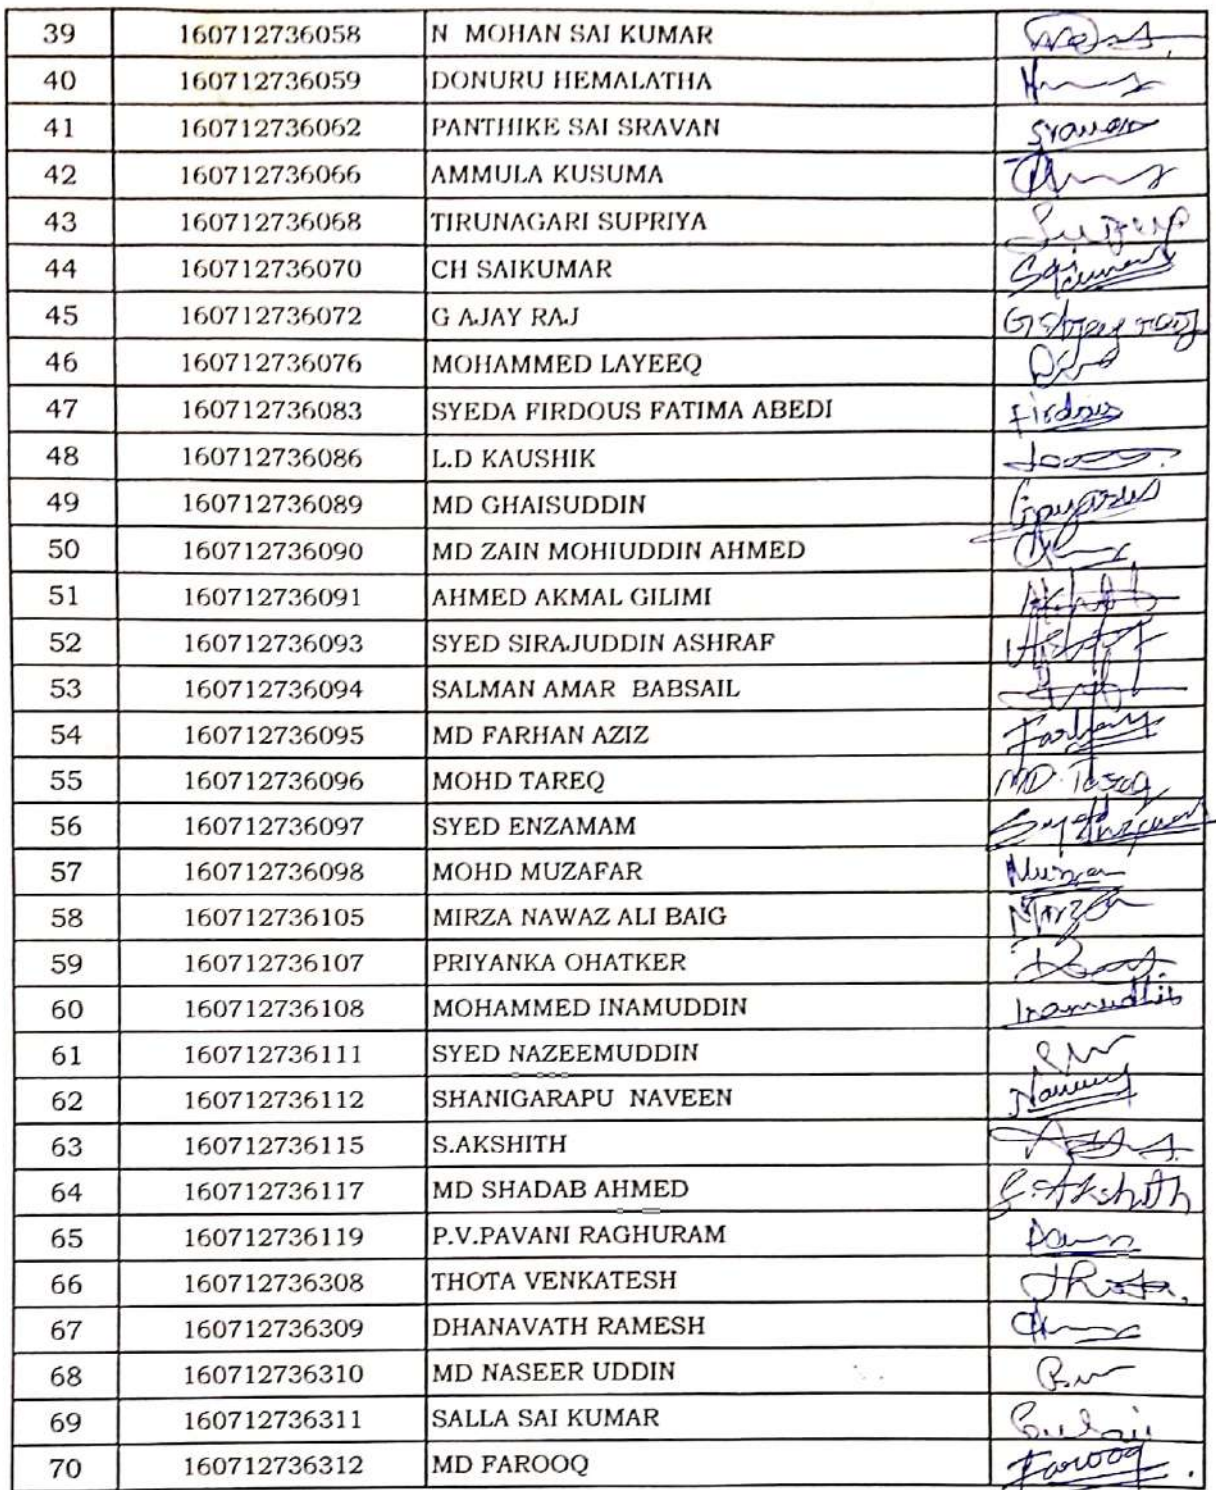 39 160712736058 N MOHAN SAI KUMAR
40 160712736059 DONURU HEMALATHA
41 160712736062 PANTHIKE SAI SRAVAN Sravan
42 160712736066 AMMULA KUSUMA
43 160712736068 TIRUNAGARI SUPRIYA
44 160712736070 CH SAIKUMAR
45 160712736072 G AJAY RAJ
46 160712736076 MOHAMMED LAYEEQ
47 160712736083 SYEDA FIRDOUS FATIMA ABEDI
48 160712736086 L.D KAUSHIK
49 160712736089 MD GHAISUDDIN
50 160712736090 MD ZAIN MOHIUDDIN AHMED
51 160712736091 AHMED AKMAL GILIMI
52 160712736093 SYED SIRAJUDDIN ASHRAF
53 160712736094 SALMAN AMAR BABSAIL
54 160712736095 MD FARHAN AZIZ
55 160712736096 MOHD TAREQ
56 160712736097 SYED ENZAMAM
57 160712736098 MOHD MUZAFAR
58 160712736105 MIRZA NAWAZ ALI BAIG
59 160712736107 PRIYANKA OHATKER
60 160712736108 MOHAMMED INAMUDDIN
61 160712736111 SYED NAZEEMUDDIN
62 160712736112 SHANIGARAPU NAVEEN
63 160712736115 S.AKSHITH
64 160712736117 MD SHADAB AHMED S.Akshith
65 160712736119 P.V.PAVANI RAGHURAM
66 160712736308 THOTA VENKATESH
67 160712736309 DHANAVATH RAMESH
68 160712736310 MD NASEER UDDIN
69 160712736311 SALLA SAI KUMAR
70 160712736312 MD FAROOQ Farooq